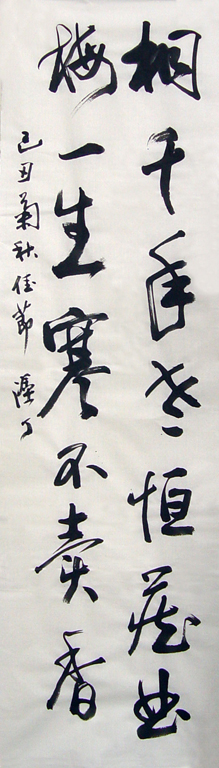 桐千年老恒藏曲
梅一生寒不卖香
己丑菊秋佳节